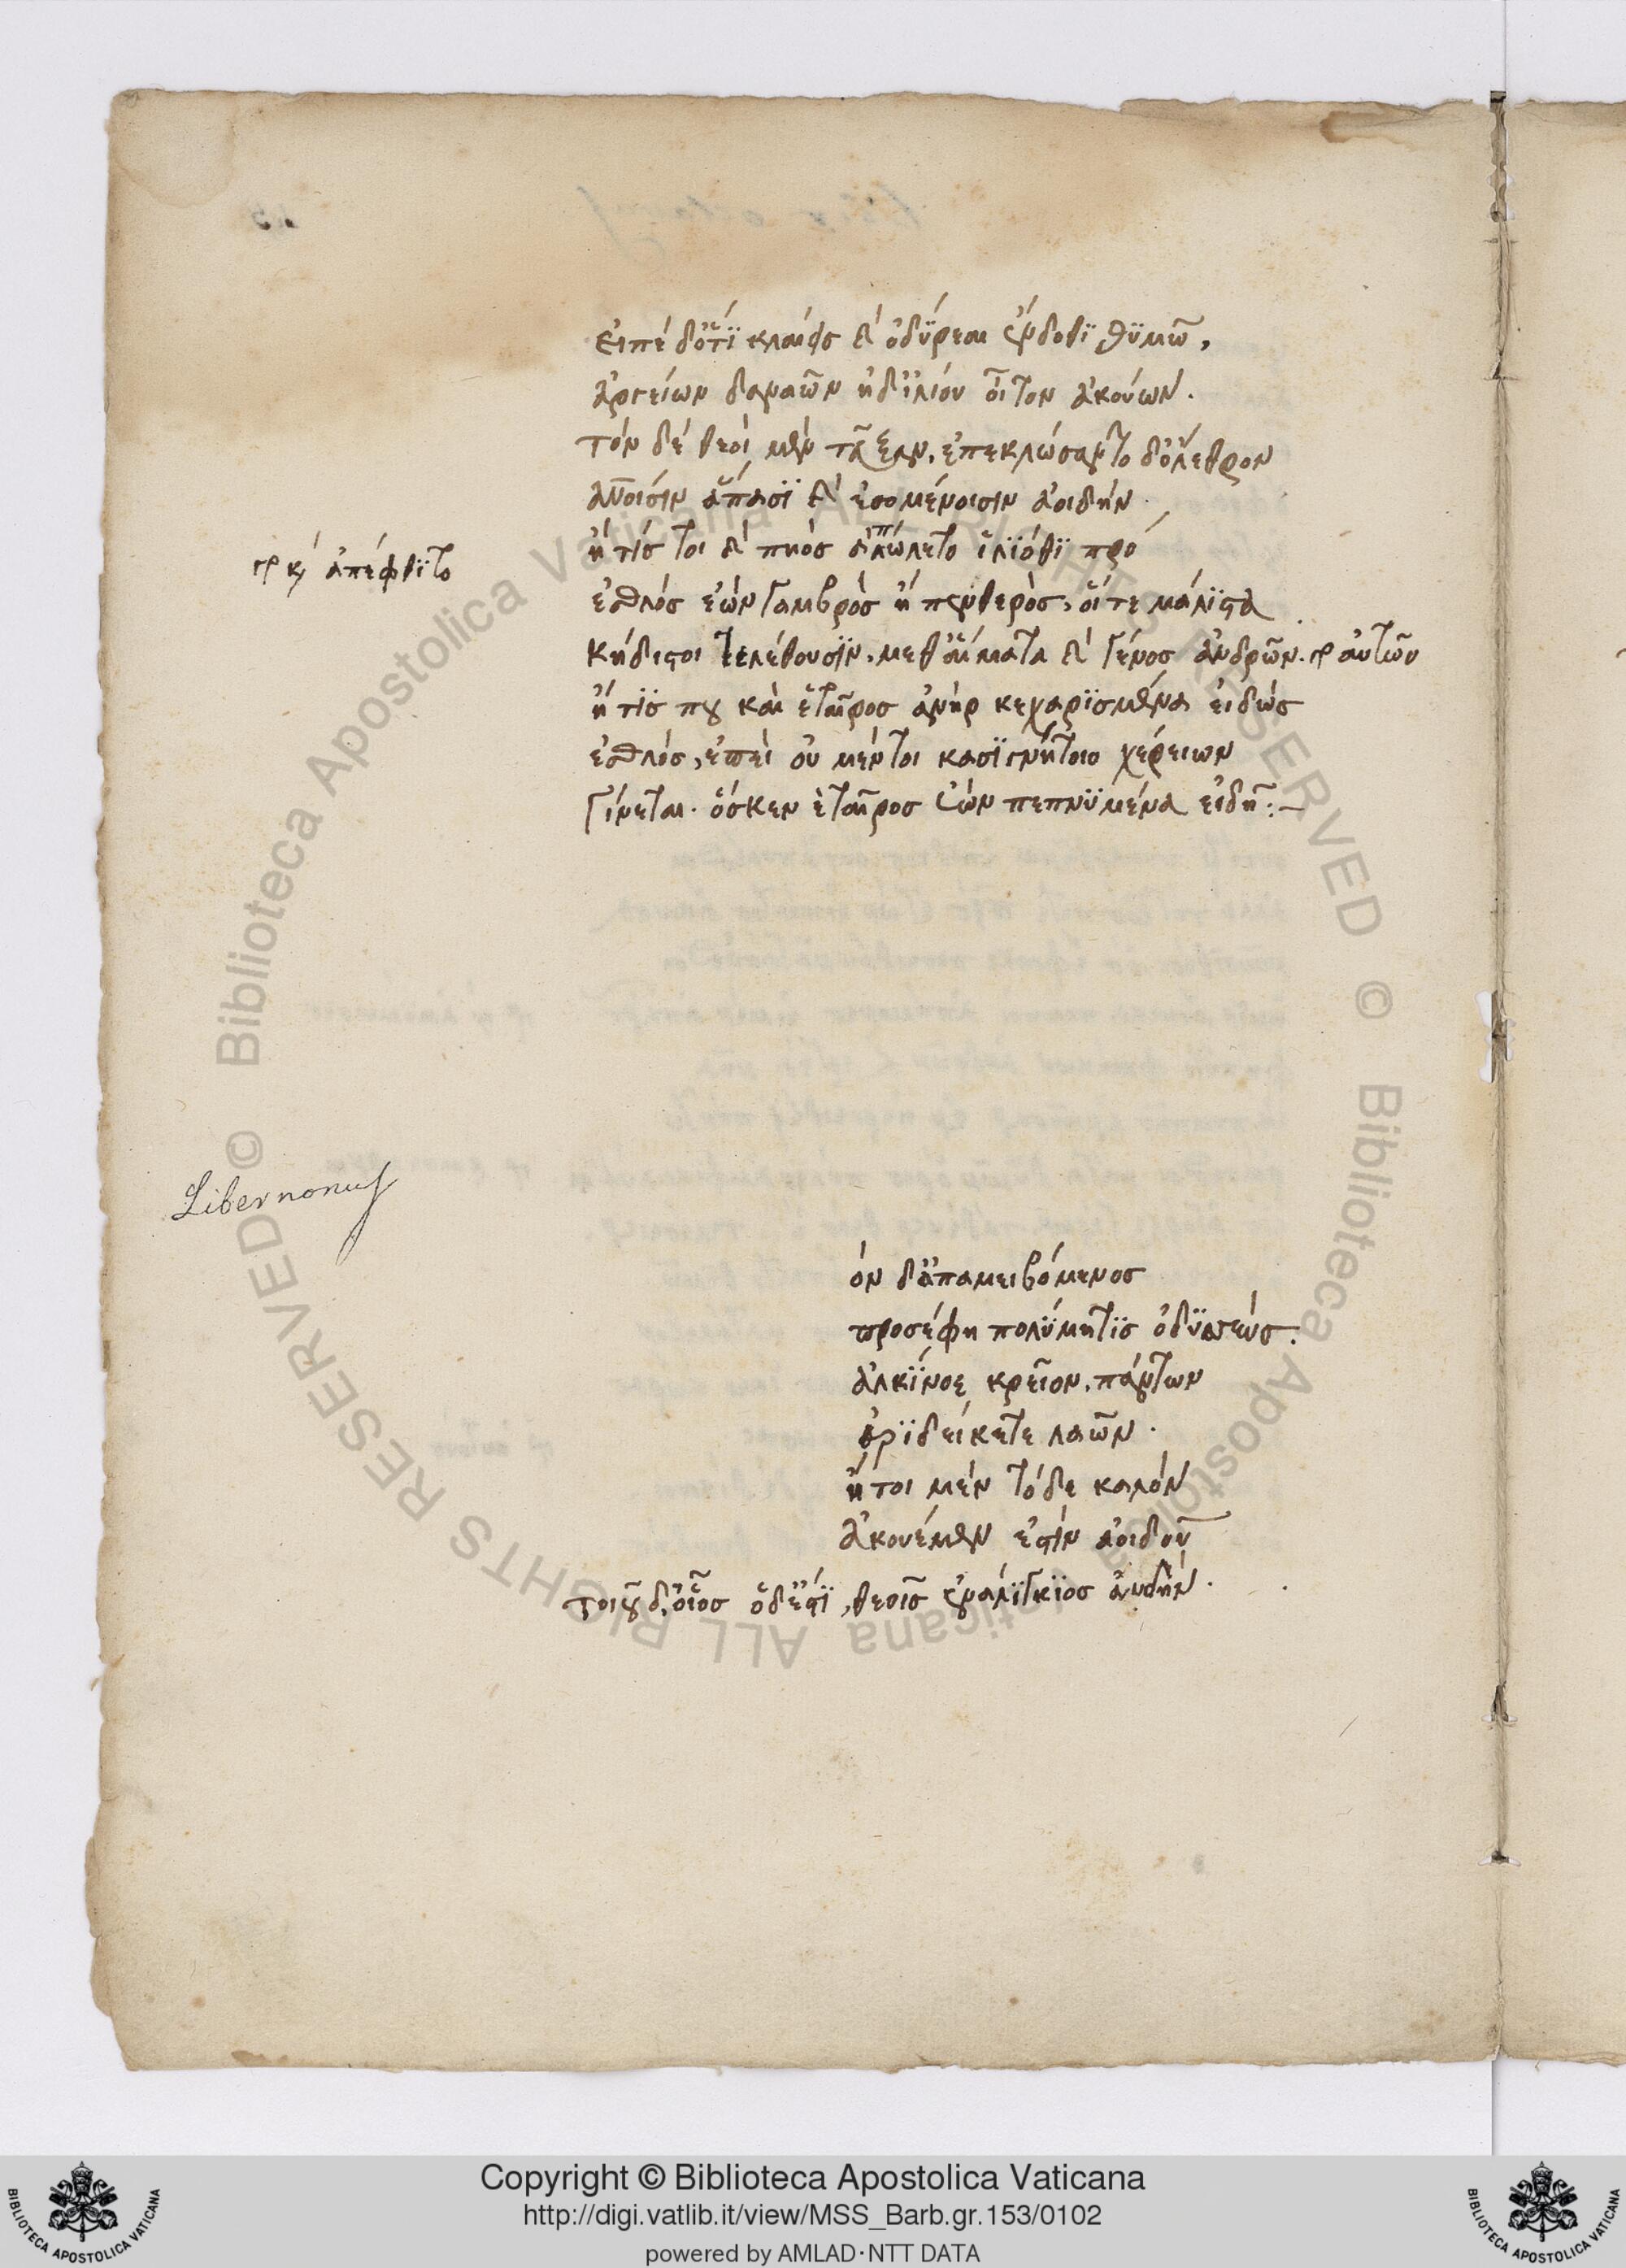 εἰπὲ δ' ὅ, τι κλαίεις καὶ ὀδύρεαι ἔνδοθι θυμῶ,
ἀργείων δαναῶν ἠδ' ἰλίου οἶτον ἀκούων.
τὸν δὲ θεοὶ μὲν τεῦξαν, ἐπεκλώσαντο δ' ὄλεθρον
ἀνοισὶν ἅπασι καὶ ἐσομένοισιν ἀοιδήν.
ἤ τίς τοι καὶ πηὸς ἀπώλετο ἰλιόθι πρό
γρ κ ἀπέφθιτο
ἐσθλὸς ἐὼν γαμβρὸς ἢ πενθερὸς, οἵ τε μάλιστα
κήδιστοι τελέθουσιν, μεθ' αἷμά τε καὶ γένος ἀνδρῶν. γρ αὐτῶν
ἤ τίς που καὶ ἑταῖρος ἀνὴρ κεχαρισμένα εἰδὼς
ἐσθλός, ἐπεὶ οὐ μέν τοι κασιγνήτοιο χερείων
γίνεται. ὅς κεν ἑταῖρος ἐὼν πεπνυμένα εἰδῆ:-
Libernonus
ὸν δ' ἀπαμειβόμενος
προσέφη πολύμητις ὀδυσσεύς.
ἀλκίνοε κρεῖον, πάντων
ἀριδείκετε λαῶν.
ἤτοι μὲν τόδε καλὸν
ἀκουέμεν ἐστὶν ἀοιδοῦ
τοιοῦδ, οἷος ὅδ' ἐστὶ, θεοῖς ἐναλίγκιος αὐδήν.
© Biblioteca Apostolica Vaticana ALL RIGHTS RESERVED © Biblioteca Apostolica Vaticana ALL RIGHTS RESERVED
Copyright © Biblioteca Apostolica Vaticana
http://digi.vatlib.it/view/MSS_Barb.gr.153/0102
powered by AMLAD·NTT DATA
BIBLIOTECA APOSTOLICA VATICANA
BIBLIOTECA APOSTOLICA VATICANA